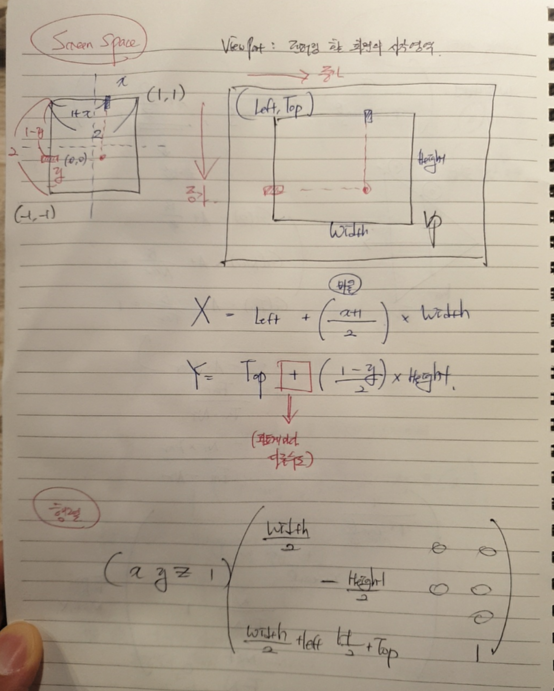 Screen Space
Viewport : 렌더링 할 화면의 시작영역
증가
x
(1, 1)
1+x
1-y
2
2
(0,0)
y
(-1, -1)
(Left, Top)
증가
Height
Width
VP
비율
X = Left + (x+1/2) × Width
Y = Top + (1-y/2) × Height.
행렬
(x y z 1)
Width/2 0 0
- Height/2 0 0
0
Width/2 + left H/2 + Top 1